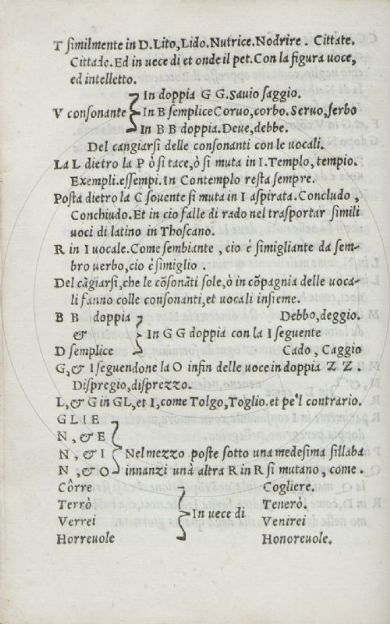 T similmente in D. Lito, Lido. Nutrice. Nodrire. Cittate.
Cittade. Ed in vece di et onde il pet. Con la figura voce,
ed intelletto.
In doppia G G. Sauio saggio.
V consonante In B semplice Coruo, corbo. Seruo, serbo
In B B doppia. Deue, debbe.
Del cangiarsi delle consonanti con le uocali.
La L dietro la P ò si tace, ò si muta in I. Templo, tempio.
Exempli. essempi. In Contemplo resta sempre.
Posta dietro la C souente si muta in I aspirata. Concludo,
Conchiudo. Et in cio falle di rado nel trasportar simili
uoci di latino in Thoscano.
R in I uocale. Come sembiante, cio è simigliante da sem-
bro uerbo, cio è simiglio.
Del cãgiarsi, che le cõsonãti sole, ò in cõpagnia delle uoca-
li fanno colle consonanti, et uocali insieme.
B B doppia Debbo, deggio.
& In G G doppia con la I seguente
D semplice Cado, Caggio
G, & I seguendone la O infin delle uoce in doppia Z Z.
Dispregio, disprezzo.
L, & G in GL, et I, come Tolgo, Toglio. et pe'l contrario.
G L I E
N, & E
N, & I Nel mezzo poste sotto una medesima sillaba
N, & O innanzi una altra R in R si mutano, come.
Côrre Cogliere.
Terrò Tenerò.
In uece di
Verrei Venirei
Horreuole Honoreuole.